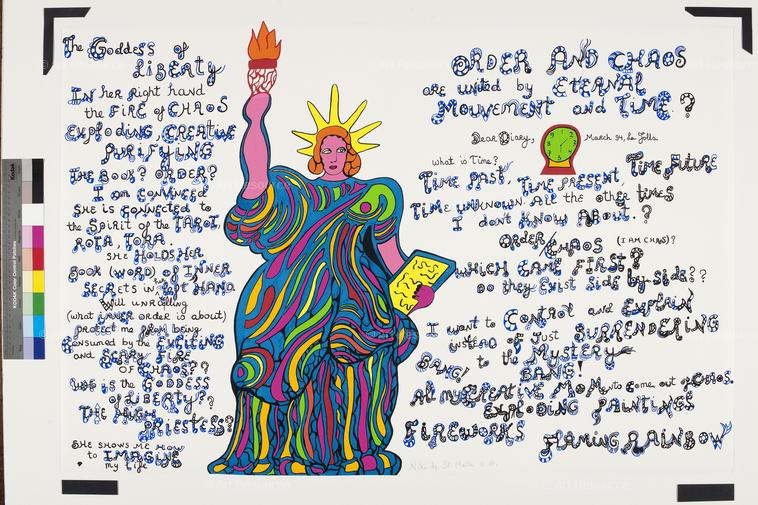 The Goddess of
LIBERTY
IN her Right hand
the FIRE of CHAOS
EXPLODING, CREATIVE
PURIFYING
THE BOOK? ORDER?
I am CONVINCED
SHE is CONNECTED to
the Spirit of the TAROT,
ROTA, TORA.
SHE HOLDS HER
BOOK (WORD) of INNER
SECRETS in LEFT HAND.
Will UNRavelling
(what INNER order is about)
protect me from being
Consumed by the EXCITING
and SCARY FIRE
OF CHAOS??
WHO is the GODDESS
of LIBERTY?
THE HIGH
PRIESTESS?
SHE SHOWS ME HOW
to IMAGINE
my life
ORDER AND CHAOS
are united by ETERNAL
MOUVEMENT and TIME?
Dear Diary,
March 94, La Jolla
what is Time?
TIME PAST, TIME PRESENT, TIME FUTURE
TIME UNKNOWN. All the other times
I don't KNOW About.?
ORDER/CHAOS (I AM CHAOS)?
WHICH CAME FIRST?
or do they Exist Side by-side??
I want to Control and EXPLAIN
INSTEAD of just SURRENDERING
to the MYSTERY
BANG! BANG!
All my CREATIVE MOMents come out of CHAOS.
EXPLODING PAINTINGS
FIREWORKS FLAMING RAINBOW
Niki de St Phalle